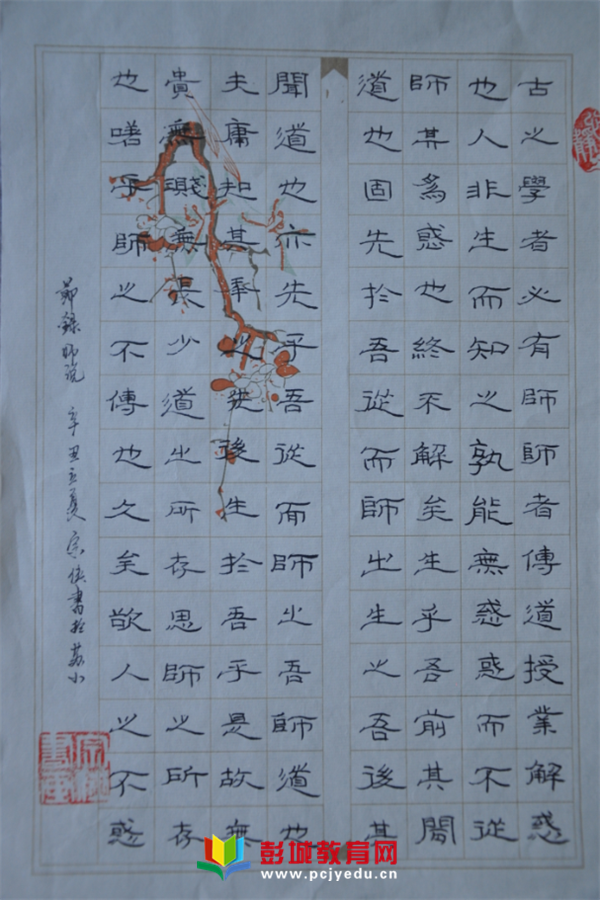 古之學者必有師師者傳道授業解惑
也人非生而知之孰能無惑惑而不從
師其爲惑也終不解矣生乎吾前其聞
道也固先於吾從而師之生之吾後其
聞道也亦先乎吾從而師之吾師道也
夫庸知其年之先後生於吾乎是故無
貴無賤無長少道之所存思師之所存
也嗟乎師之不傳也久矣欲人之不惑
節錄師説 辛丑立夏 書於 小
彭城教育网
www.pcjyedu.cn